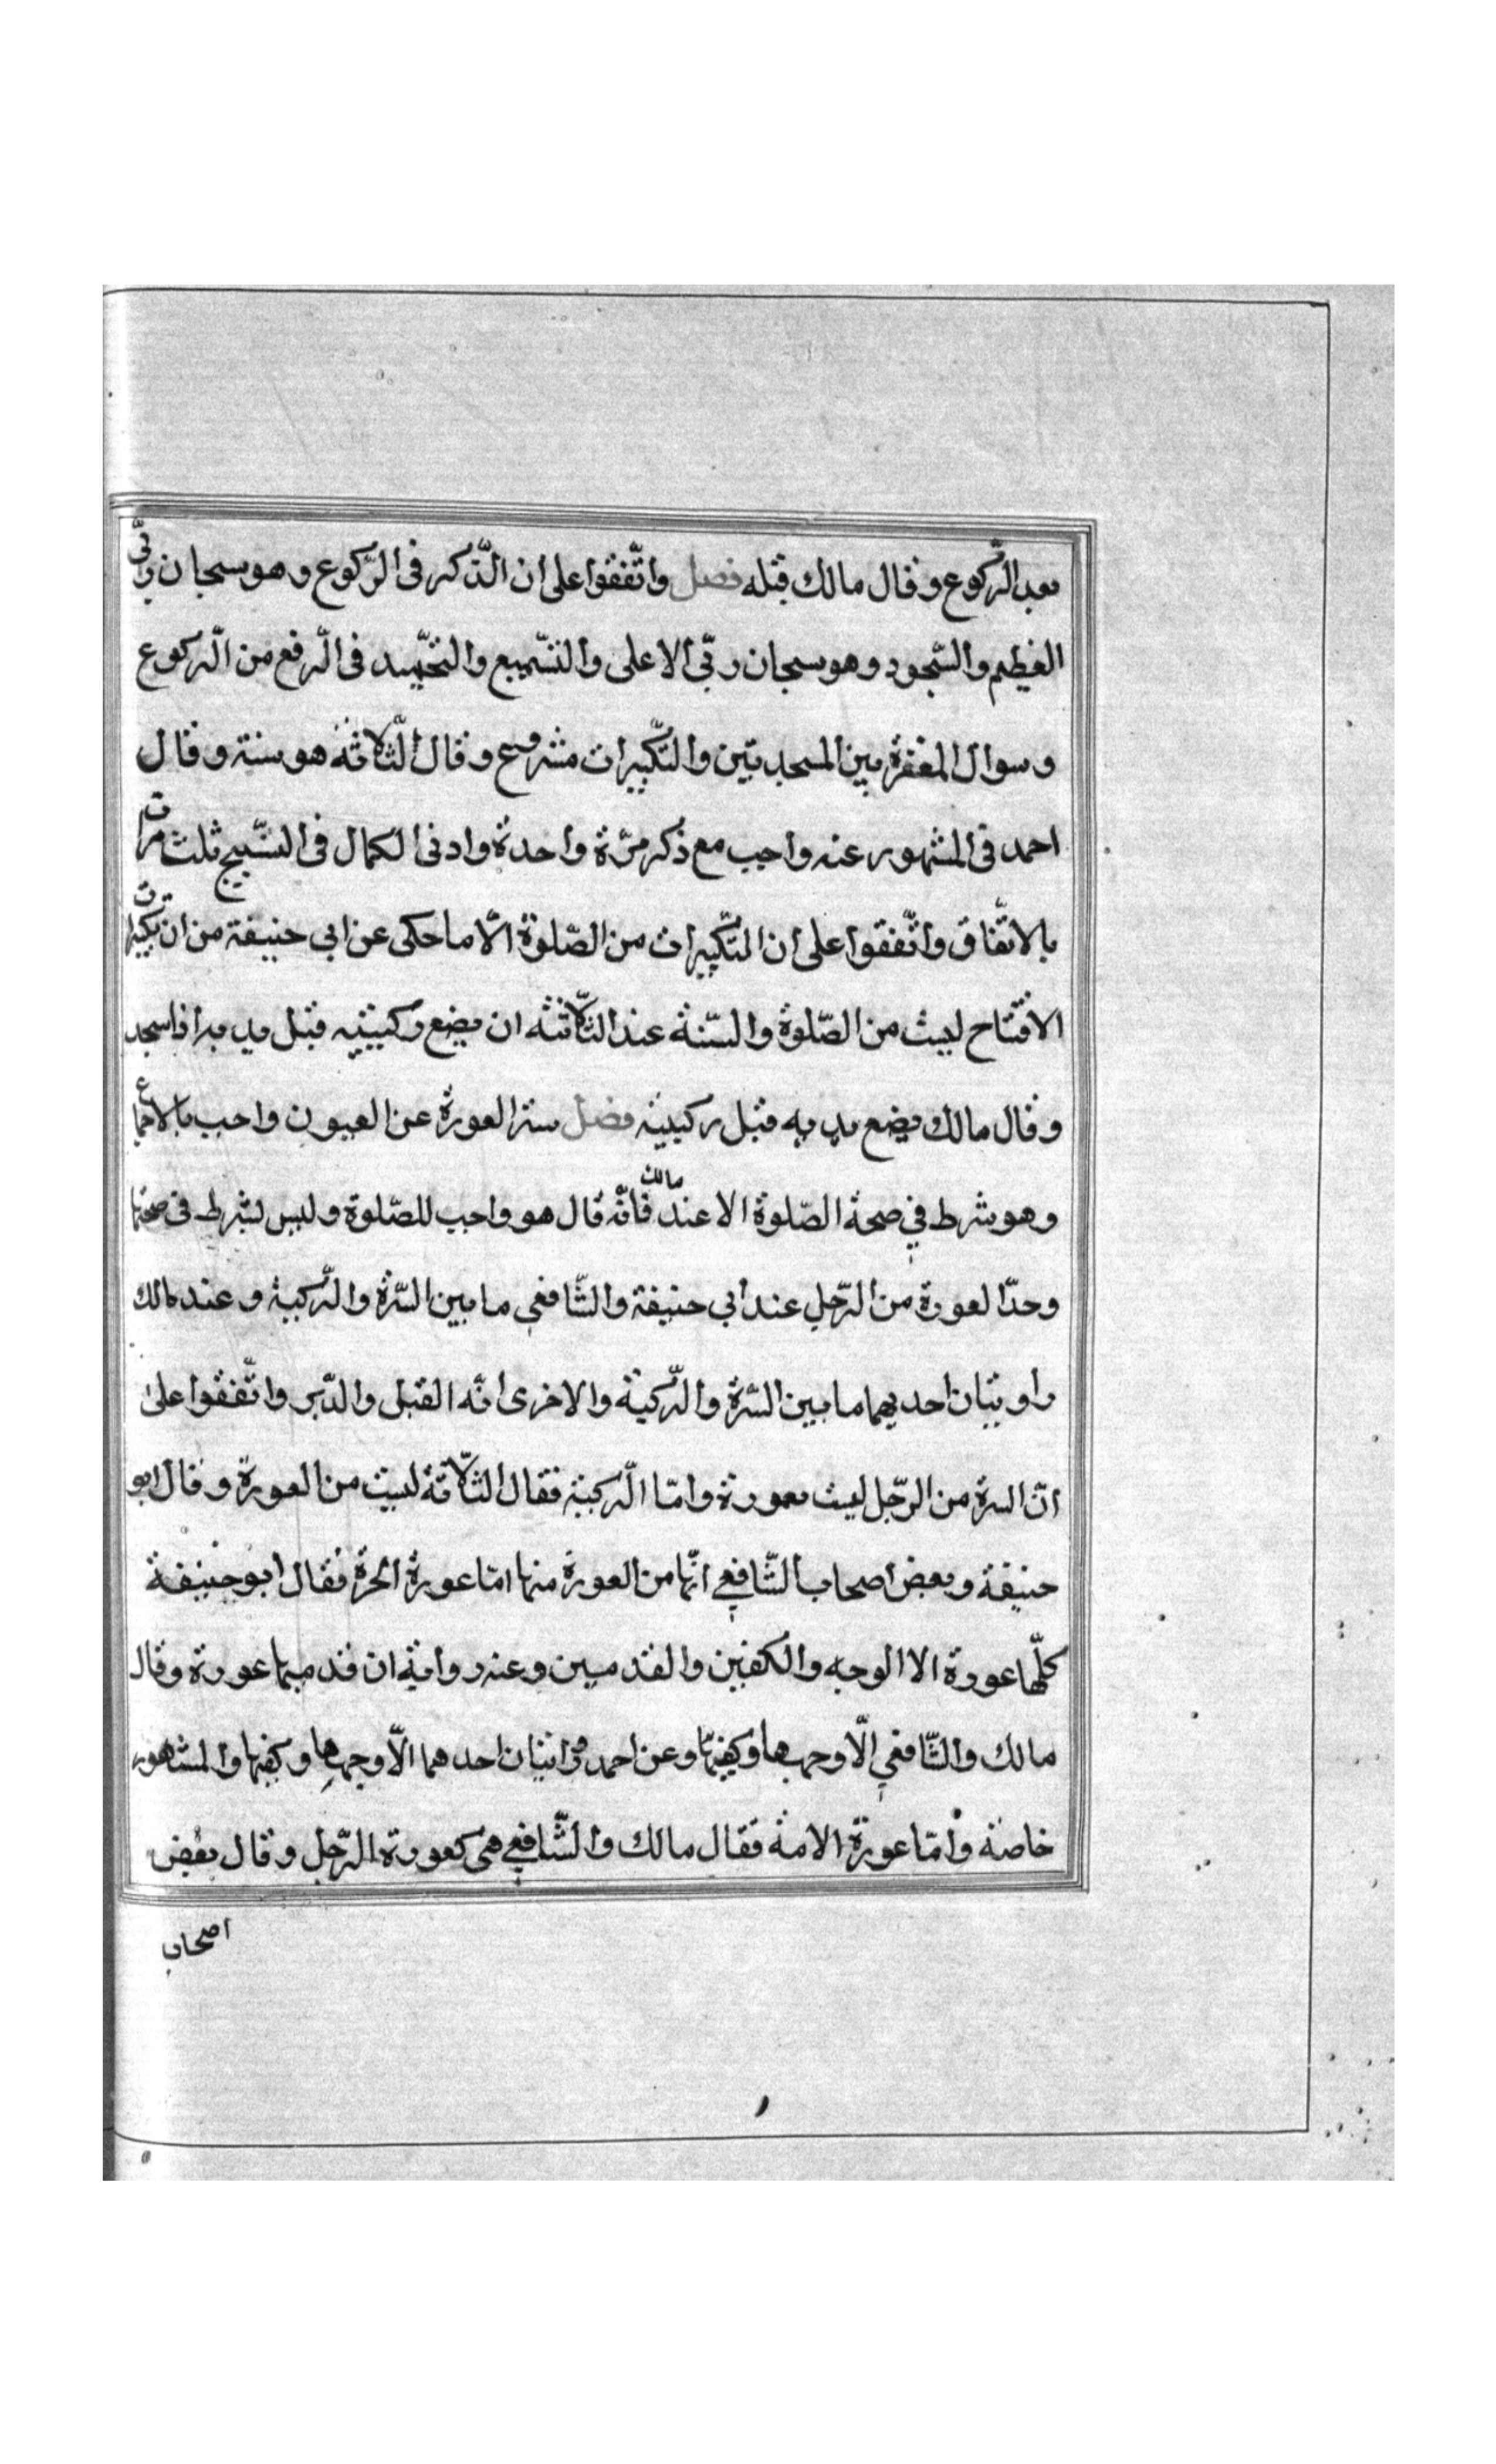 بعد الركوع وقال مالك قبله فصل واتّفقوا على ان الذّكر فى الرّكوع وهو سبحان ربّى
العظيم والسّجود وهو سبحان ربّي الاعلى والتسّميع والتحّميد فى الرّفع من الرّكوع
وسوال المغفرة بين السجدتين والتكّبيرات مشروع وقال الثّلاثة هو سنة وقال
احمد فى المشهور عنه واجب مع ذكر مرّة واحدة وادنى الكمال فى التسّبيح ثلث مرات
بالاتّفاق واتّفقوا على ان التكّبيرات من الصّلوة الّا ما حكى عن ابي حنيفة من ان تكبيرات
الافتتاح ليست من الصّلوة والسّنة عند الثّلاثة ان يضع ركبتيه قبل يديه اذا سجد
وقال مالك يضع يديه قبل ركبتيه فصل ستر العورة عن العيون واجب بالاجماع
وهو شرط في صحة الصّلوة الا عند مالك فانّه قال هو واجب للصّلوة وليس بشرط فى صحتها
وحدّ العورة من الرّجل عند أبي حنيفة والشّافعي ما بين السّرة والرّكبة وعند مالك
راويتان احديهما ما بين السّرة والرّكبة والاخرى انّه القبل والدّبر واتّفقوا على
انّ السرة من الرّجل ليست بعورة وامّا الرّكبة فقال الثّلاثة ليست من العورة وقال ابو
حنيفة وبعض اصحاب الشّافعي انّها من العورة منها امّا عورة الحرة فقال ابو حنيفة
كلّها عورة الا الوجه والكفين والقدمين وعنه رواية ان قدميها عورة وقال
مالك والشّافعي الّا وجهها وكفيها وعن احمد روايتان احدهما الّا وجهها وكفيها والمشهور
خاصة وامّا عورة الامة فقال مالك والشّافعي هى كعورة الرّجل وقال بعض
اصحاب